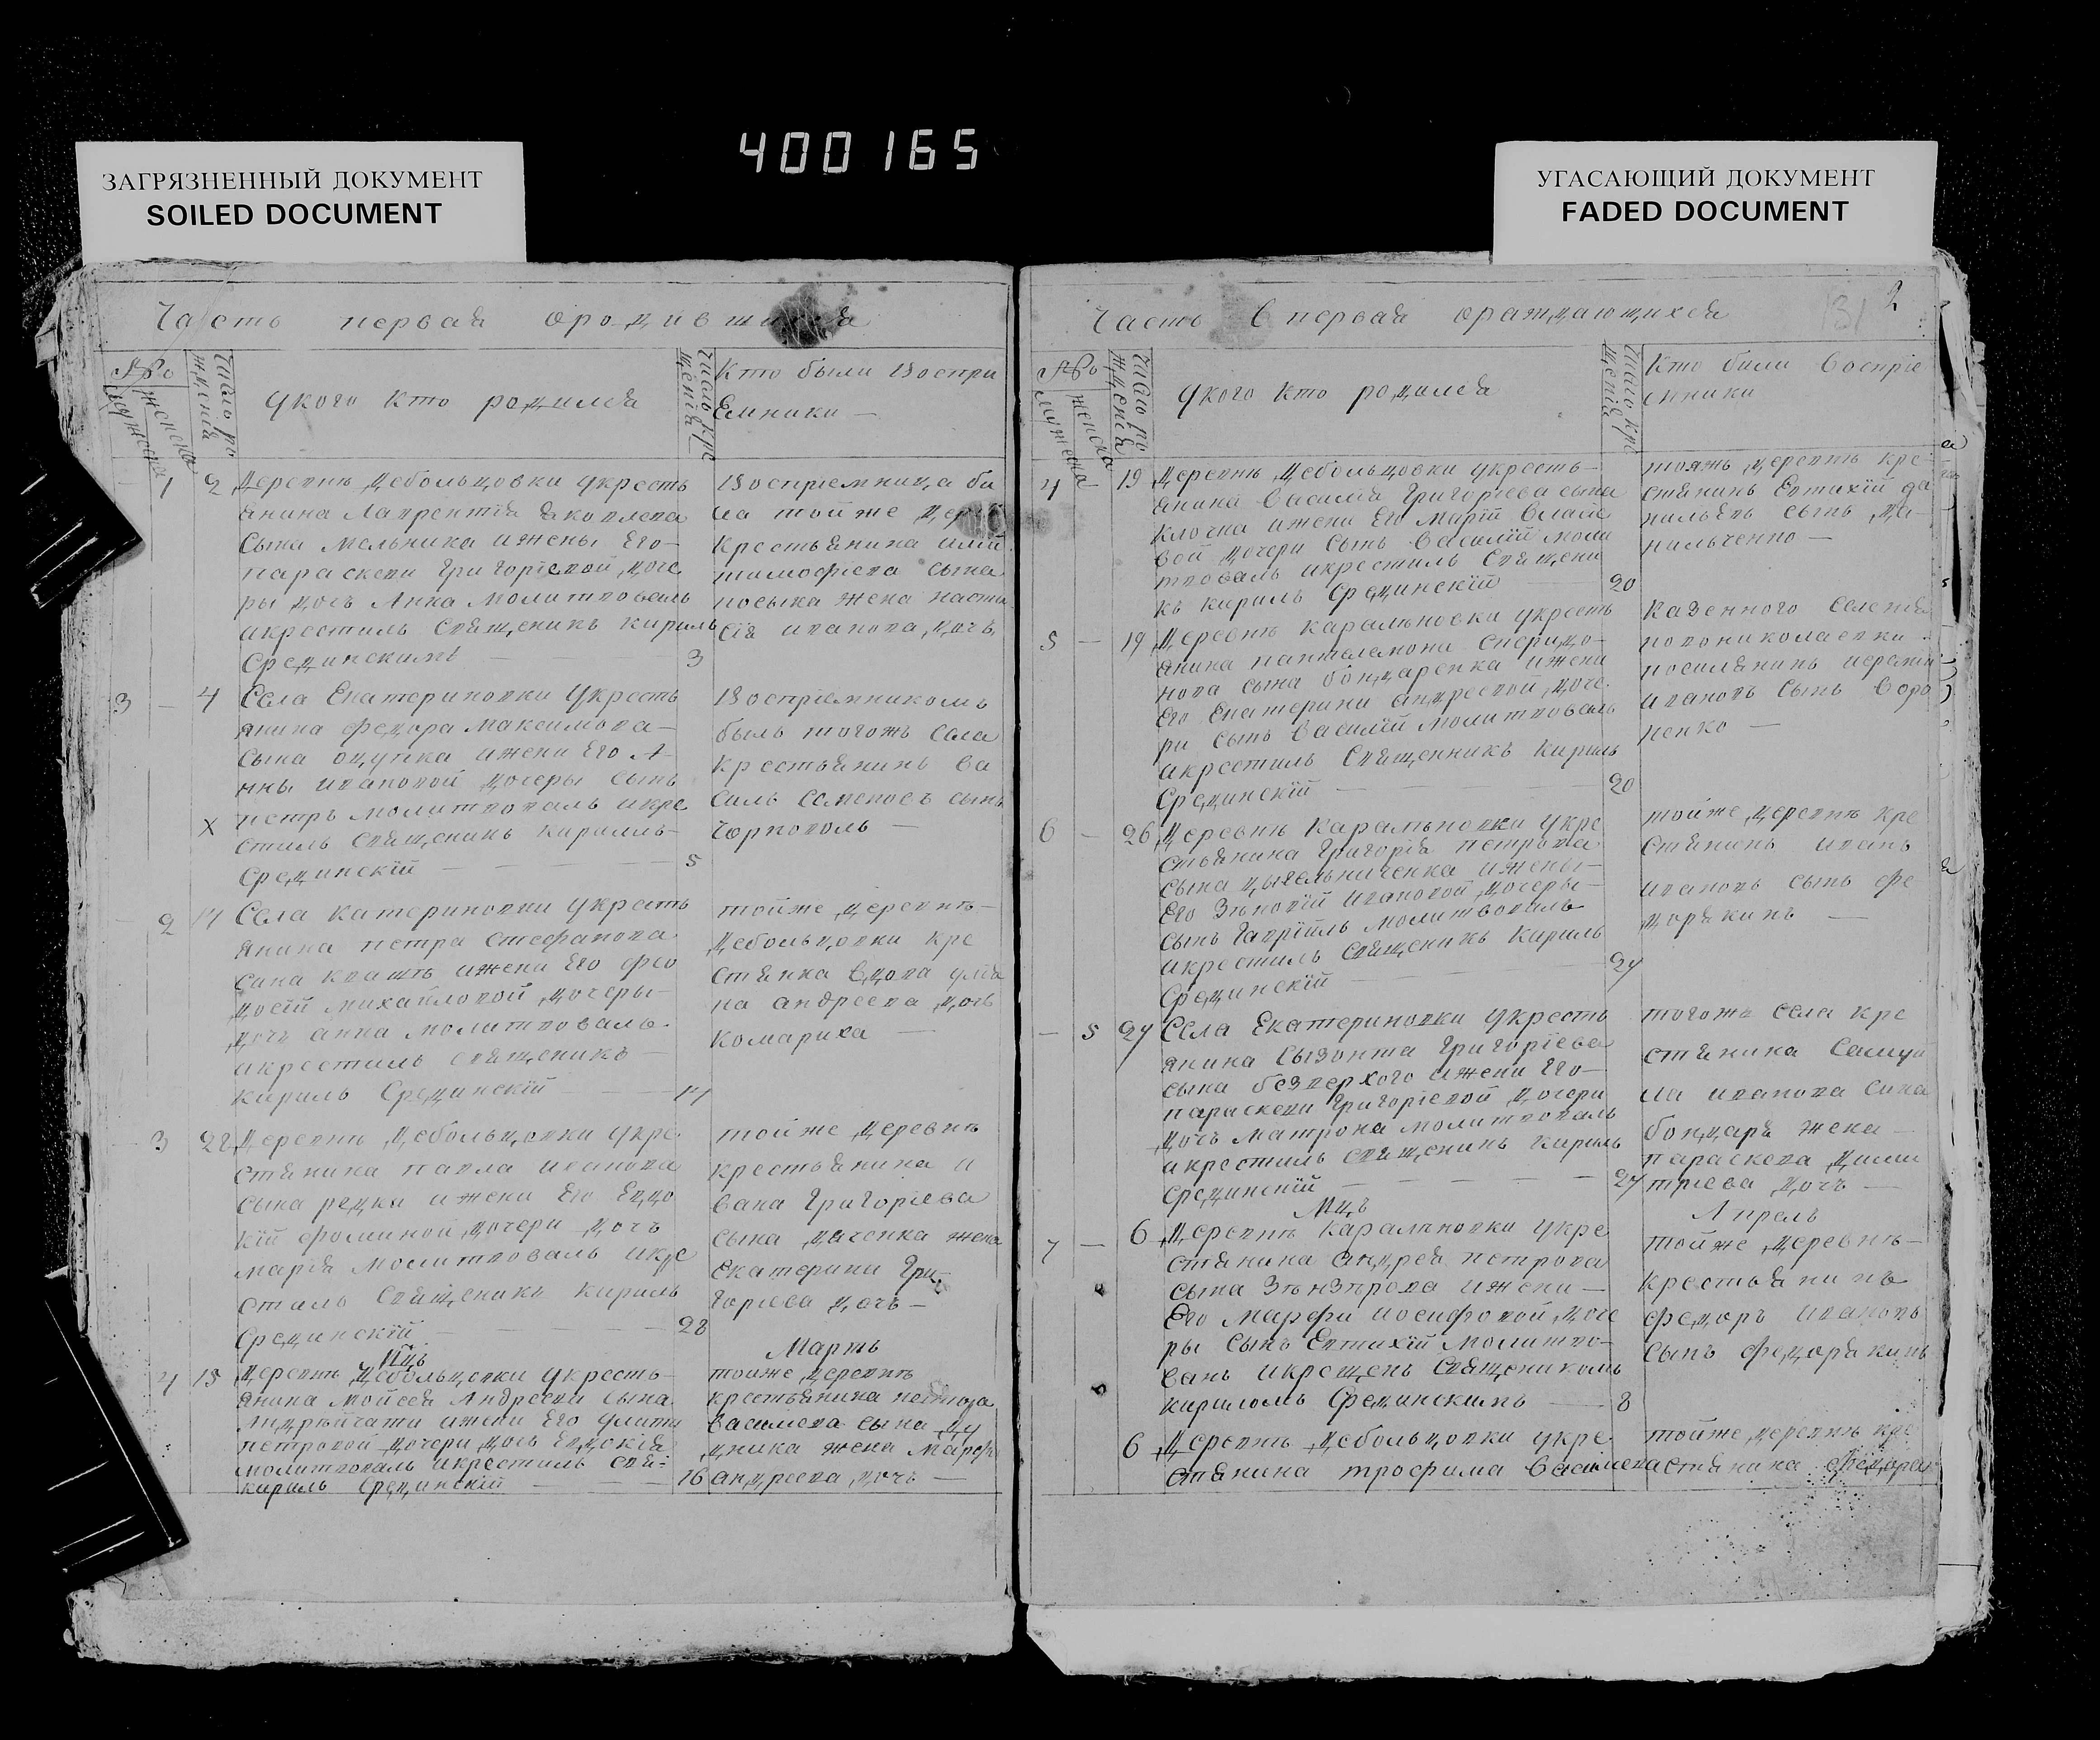 400165
ЗАГРЯЗНЕННЫЙ ДОКУМЕНТ
SOILED DOCUMENT
УГАСАЮЩИЙ ДОКУМЕНТ
FADED DOCUMENT
Часть первая ородившихся
№
мужеска
женска
Число рождения
Укого кто родился
Число крещения
Кто были Воспри
Емники —
1 2 Деревнѣ Дебольцовки укресть
янина Лаврентія Яковлева
Сына Мельника ижены Его —
параскеви Григоріевой доче
ры дочь Анна Молитвовалъ
икрестилъ Священикъ Кирилъ
Срединскимъ — 3
Воспріемница бы
ла тойже
Крестьянина
тимофіева сына
носыка жена наста
сія иванова дочь
3 — 4 Села Екатериновки Укресть
янина Федора Максимова —
Сына оцупка ижени Его А
нны ивановой дочеры сынъ
петръ молитвовалъ икре
X
стилъ Священикъ Кириллъ —
Срединскій — 5
Воспріемникомъ
былъ тогожъ Села
Крестьянинъ Ва
силь Семеновъ сынъ
Чорноволъ —
2 17 Села Катериновки Укресть
янина петра Стефанова
Сина Квашъ ижени Его Фео
досій михайловой дочеры —
дочь анна молитвовалъ
икрестилъ священикъ —
Кирилъ Срединскій — 17
тойже деревнѣ —
Дебольцовки кре
стянка Вдова улія
на андреева дочь
Комариха —
3 28 Деревнѣ Дебольцовки укре
стянина павла иванова
сына редки ижени Его Евдо
кій фоминой дочери дочь
марія молитвовалъ икре
стилъ Священикъ Кирилъ
Срединскій — 28
тойже деревнѣ
крестьянина и
вана Григоріева
сына даченка жена
Екатерини Гри
горіева дочь —
Мцъ Мартъ
4 15 Деревнѣ Дебольцовки укресть
янина Мойсея Андреева сына
ижени Его улити
петровой дочери дочь Евдокія
молитвовалъ икрестилъ свя
Кирилъ Срединскій — 16
тойже деревнѣ
крестьянина
Василева сына ду
дника жена Марфа
андреева дочь —
2
131
Часть Впервая ораждающихся
№
мужеска
женска
Число рождения
Укого кто родился
Число крещения
Кто были Воспріе
мники
4 — 19 Деревнѣ Дебольцовки укресть —
янина Василія Григоріева сына
Клочка ижени Его Маріи Власо
вой дочери сынъ Василій моли
твовалъ икрестилъ Священи
къ Кирилъ Срединскій 20
тояжъ деревнѣ кре
стянинъ Евтихій да
нильевъ сынъ да
нильченко —
5 — 19 Деревнѣ Каральновки укресть
янина пантелемона Спиридо —
нова сына бондаренка ижени
Его Екатерини андреевой доче
ри сынъ Василій молитвовалъ
икрестилъ Священникъ Кирилъ
Срединскій — 20
Казенного Селенія
новониколаевки
посилянинъ
ивановъ сынъ Воро
ненко —
6 — 26 Деревнѣ Каральновки укре
стьянина Григорія петрова
сына ижены —
Его Зѣновій ивановой дочеры —
сынъ Гаврійлъ молитвовалъ
икрестилъ священикъ Кирилъ
Срединскій — 27
тойже деревнѣ кре
стянинъ иванъ
ивановъ сынъ фе
дорякинъ —
— 5 27 Села Екатериновки укресть
янина Сызонта Григоріева
сына безверхого ижени Его —
параскеви Григоріевой дочери
дочь матрона молитвовалъ
икрестилъ священикъ Кирилъ
Срединскій — 27
тогожъ села кре
стянина Самуи
ла иванова сина
бондаръ жена —
параскева дими
тріева дочь —
Мцъ Апрель
7 — 6 Деревнѣ Каральновки укре
стянина андрея петрова
сына ижени —
Его марфи иосифовой доче
ры сынъ Евтихій Молитво —
ванъ икрещенъ Священикомъ
Кириломъ Срединскимъ — 8
тойже деревнѣ —
крестьянинъ
федоръ ивановъ
сынъ федорякинъ
6 Деревнѣ Дебольцовки укре
стянина трофима Василева
тойже деревнѣ кре
стянина